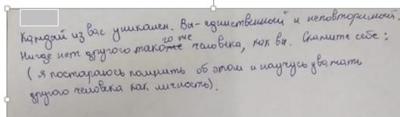 Каждый из вас уникален. Вы - единственный и неповторимый.
Нигде нет другого такого же человека, как вы. Скажите себе:
( я постараюсь помнить об этом и научусь уважать
другого человека как личность).